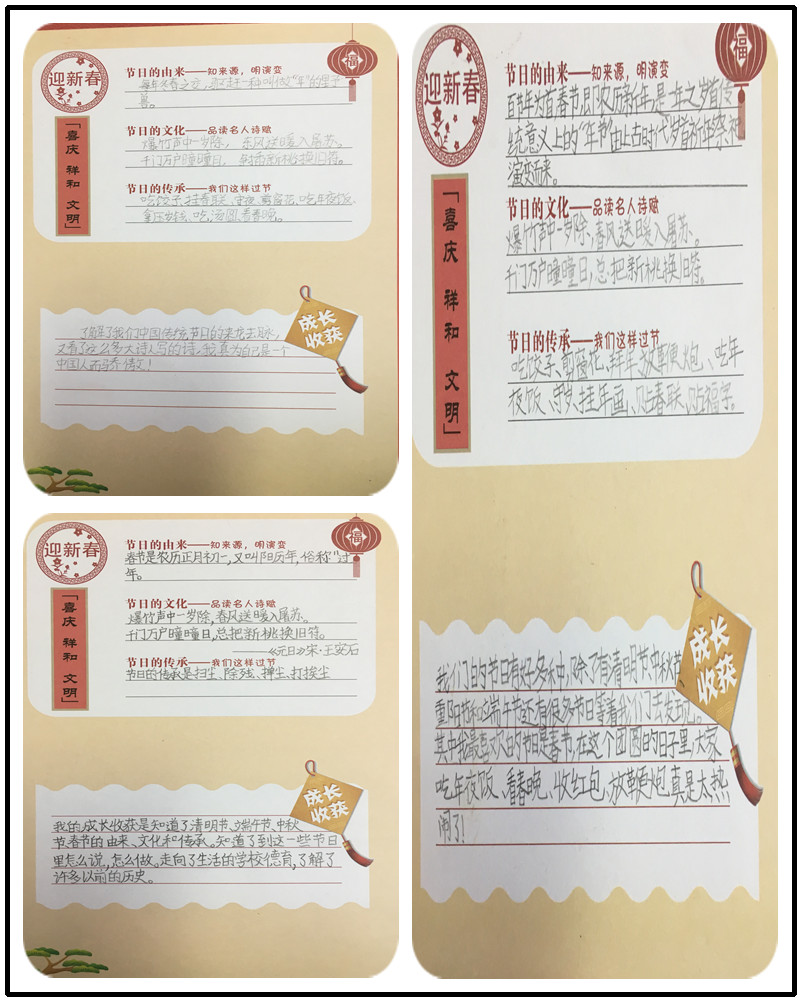 迎新春
福
节日的由来——知来源，明演变
每年冬春之交，要赶一种叫做"年"的怪子
兽。
「喜庆 祥和 文明」
节日的文化——品读名人诗赋
爆竹声中一岁除，东风送暖入屠苏。
千门万户曈曈日，
新桃换旧符。
节日的传承——我们这样过节
吃饺子、挂春联、守夜、剪窗花、吃年夜饭、
拿压岁钱、吃汤圆、看春晚。
成长
收获
了解了我们中国传统节日的来龙去脉，
又看了这么多大诗人写的诗，我真为自己是一个
中国人而骄傲！
迎新春
福
节日的由来——知来源，明演变
春节是农历正月初一，又叫阳历年，俗称"过
年。
「喜庆 祥和 文明」
节日的文化——品读名人诗赋
爆竹声中一岁除，春风送暖入屠苏。
千门万户曈曈日，总把新桃换旧符。
——《元日》宋·王安石
节日的传承——我们这样过节
节日的传承是扫尘、除残、掸尘、打埃尘
成长
收获
我的成长收获是知道了清明节、端午节、中秋
节、春节的由来、文化和传承。知道了到这一些节日
里怎么说，怎么做。走向了生活的学校德育，了解了
许多以前的历史。
迎新春
福
节日的由来——知来源，明演变
百节年为首春节，即农历新年，是一年之岁首，传
统意义上的"年节"由上古时代岁首祈年祭祀
演变而来。
「喜庆 祥和 文明」
节日的文化——品读名人诗赋
爆竹声中一岁除，春风送日暖入屠苏。
千门万户曈曈日，总把新桃换旧符。
节日的传承——我们这样过节
吃饺子、剪窗花、拜年、放鞭炮、吃年
夜饭、守岁、挂年画、贴春联、贴福字。
成长
收获
我们的节日有好多种，除了有清明节、中秋节、
重阳节和端午节还有很多节日等着我们去发现。
其中我最喜欢的节日是春节，在这个团圆的日子里，大家
吃年夜饭、看春晚、收红包、放鞭炮真是太热
闹了！